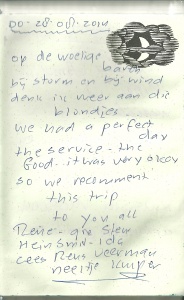 DO-28-08-2014
op de woelige
baren
bij storm en bij wind
denk ik weer aan die
blondjes
we had a perfect
day
the service - the
Good.. it was very okay
so we recomment
this trip
to you all
Rene - Stem
Hein Smit - Ida
Cees Rens Veerman
Neeltje Kuiper